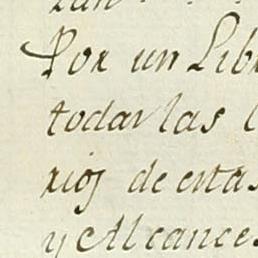 Por un Lib
todas las
rios de estas
y Alcances